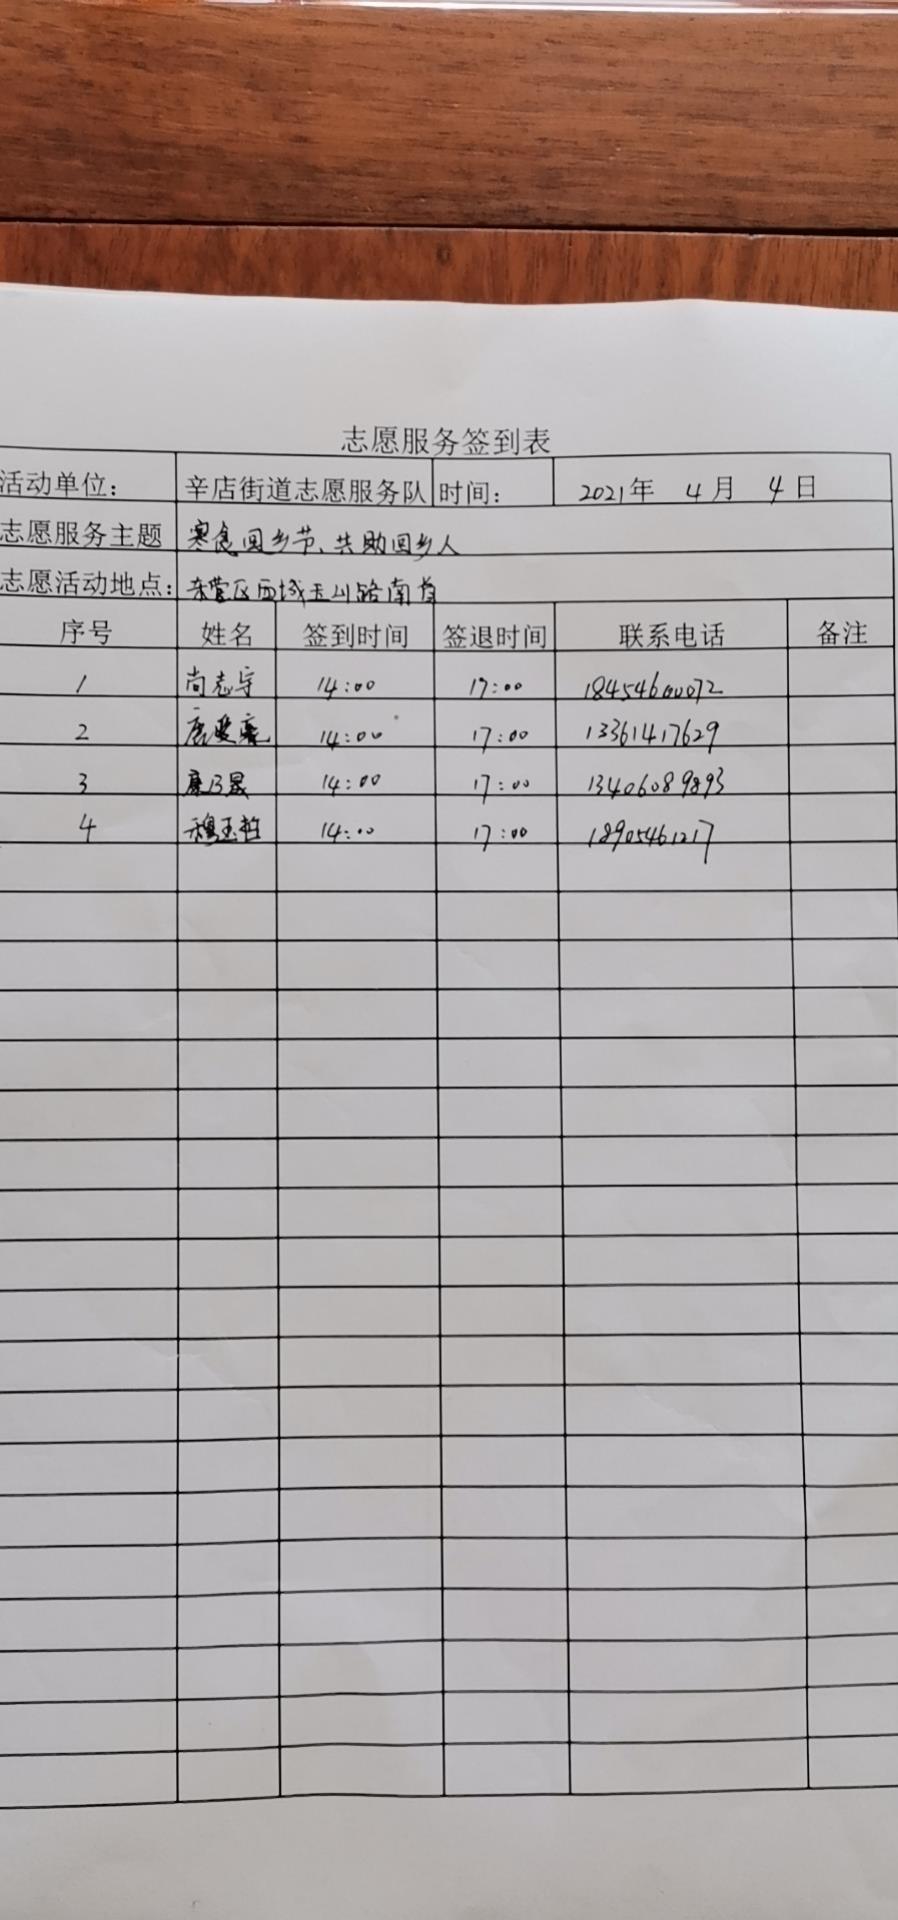 志愿服务签到表
活动单位: 辛店街道志愿服务队 时间: 2021年 4月 4日
志愿服务主题 寒食回乡节、共助回乡人
志愿活动地点: 东营区西城玉川路南首
序号 姓名 签到时间 签退时间 联系电话 备注
1 尚志宇 14:00 17:00 18454600072
2 14:00 17:00 13361417629
3 康乃晟 14:00 17:00 13406089893
4 穆玉哲 14:00 17:00 18905461217